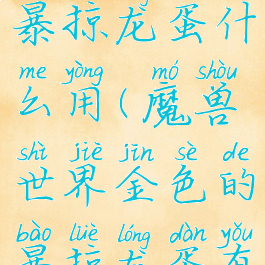 暴掠龙蛋什
me yòng mó shòu
么用(魔兽
shì jiè jīn sè de
世界金色的
bào lüè lóng dàn yǒu
暴掠龙蛋有